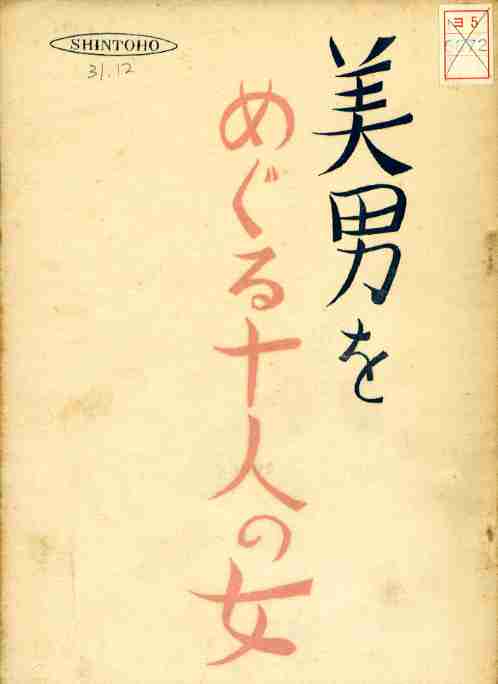 SHINTOHO
31.12
ヨ5
美男を
めぐる十人の女